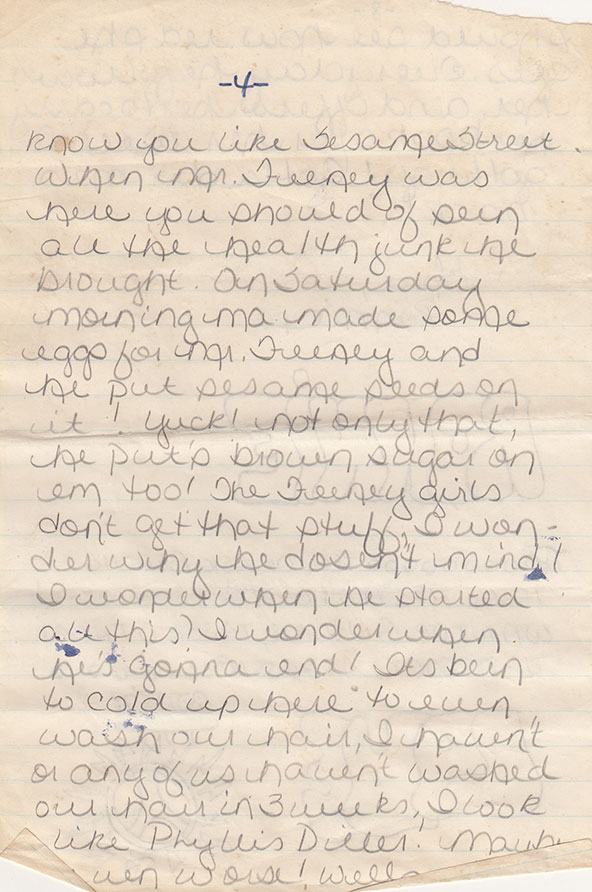 -4-
know you like Sesame Street.
When Mr. Feeney was
here you should of seen
all the health junk he
brought. On Saturday
morning ma made some
eggs for Mr. Feeney and
he put sesame seeds on
it! Yuck! not only that,
he put's brown sugar on
em too! The Feeney girls
don't get that stuff, I won-
der why he dosen't mind!
I wonder when he started
all this? I wonder when
he's gonna end! Its been
to cold up here to even
wash our hair, I haven't
or any of us haven't washed
our hair in 3 weeks, I look
like Phyllis Diller! Maybe
even worse! Well